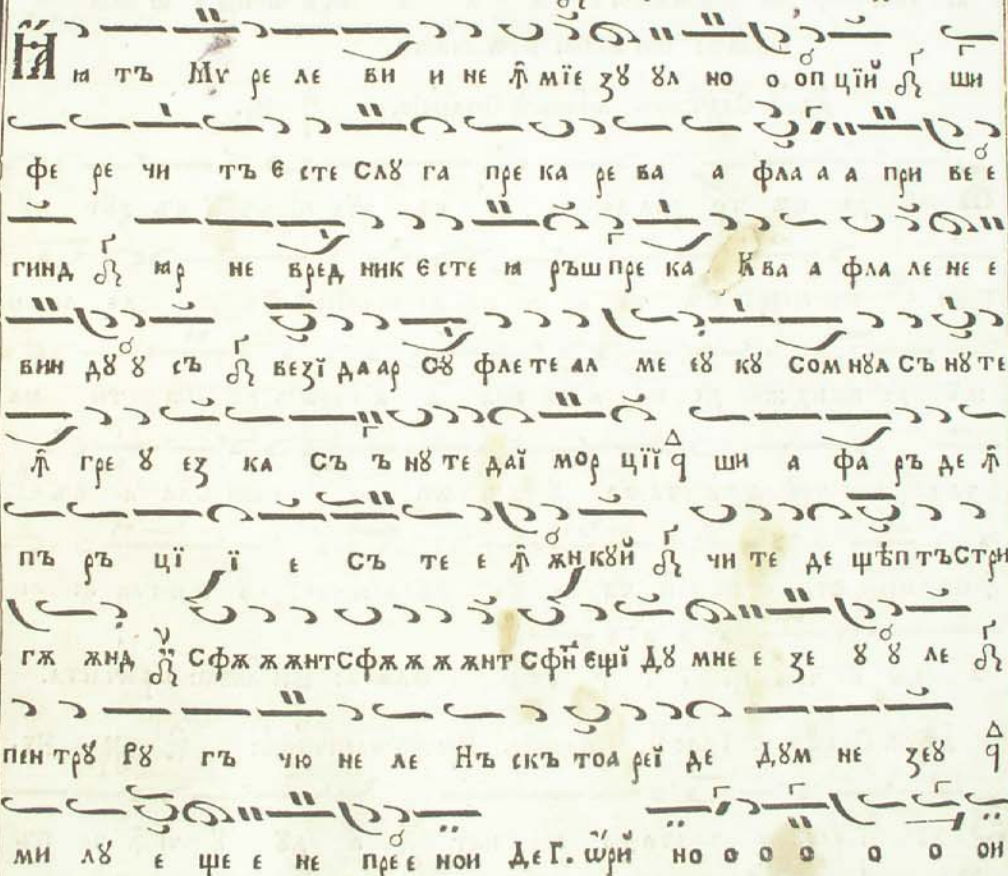 Ꙗ҆ ꙗ тъ Мѵ ре ле ви и не ꙟ҆ мїе зꙋ ꙋл но о оп цїй ши
фе ре чи тъ Є сте Слꙋ га пре ка ре ва а фла а а при ве е
гинд ꙗр не вред ник Є сте ꙗ ръш пре ка К ва а фла ле не е
вин дꙋ ꙋ съ везї да ар Сꙋ фле те ал ме еꙋ кꙋ Сом нꙋл Съ нꙋ те
ꙟ҆ гре ꙋ ез ка Съ ъ нꙋ те даї мор цїї ши а фа ръ де ꙟ҆
пъ ръ цї ї е Съ те е ꙟ҆ жн кꙋй чи те де щѣп тъ Стри
гѫ ѫнд Сфѫ ѫ ѫнт Сфѫ ѫ ѫ ѫнт Сфн ещї Дꙋ мне е зе ꙋ ꙋ ле
пен трꙋ Рꙋ гъ чю не ле Нъ скъ тоа реї де Дꙋм не зеꙋ
ми лꙋ е ще е не пре е нои Де Г. ѡрй но о о о о о ои